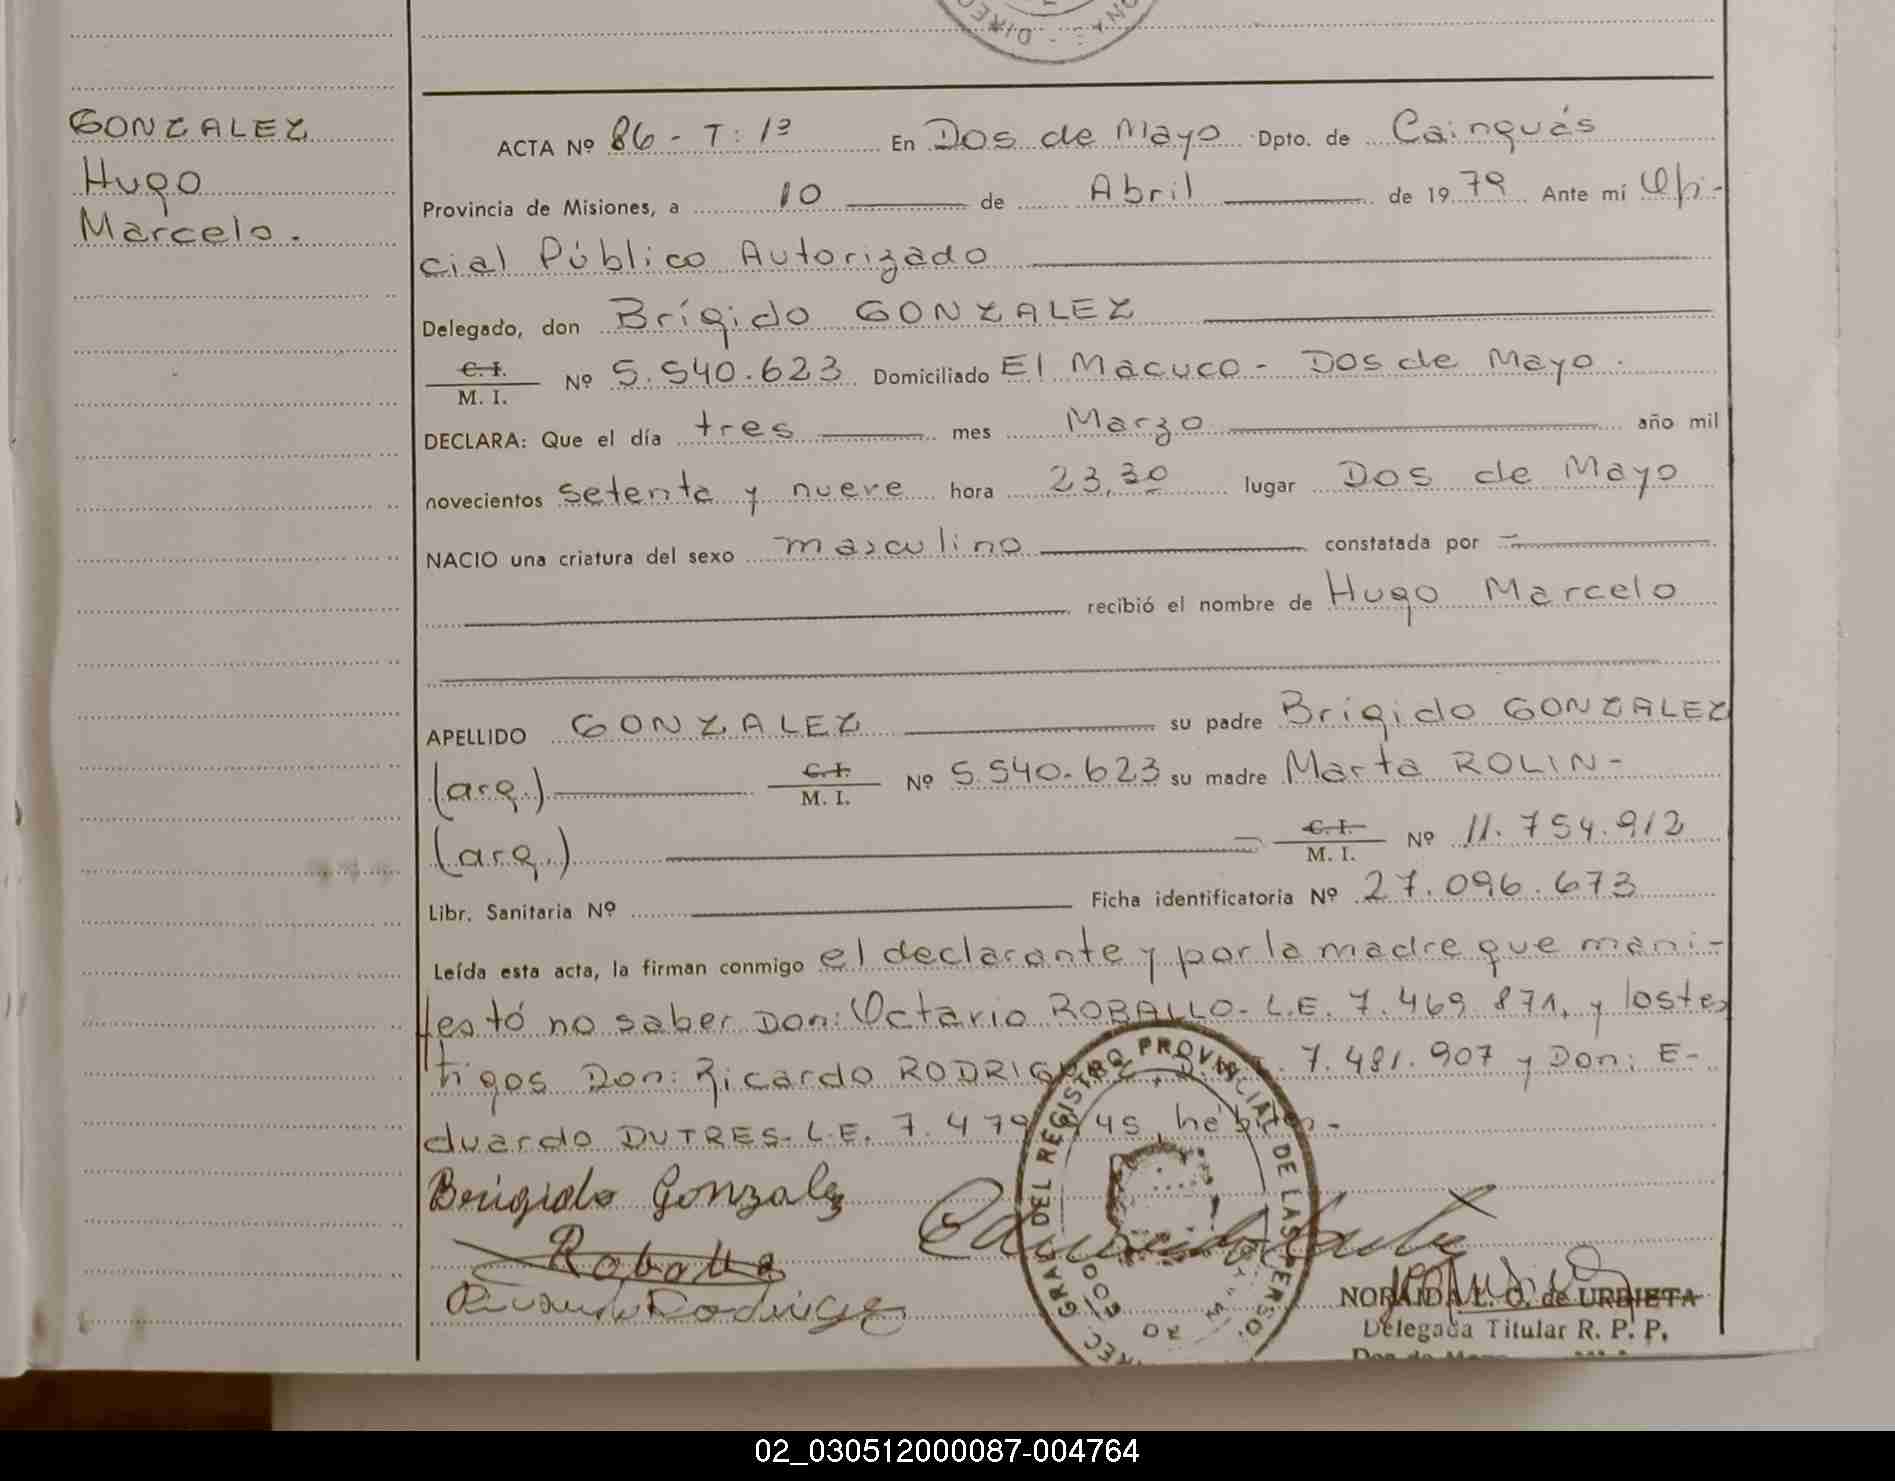 GONZALEZ
Hugo
Marcelo.
ACTA Nº 86 - T: 1º En Dos de Mayo Dpto. de Cainguás
Provincia de Misiones, a 10 de Abril de 1979 Ante mí Ofi-
cial Público Autorizado
Delegado, don Brígido GONZALEZ
C. I.
M. I. Nº 5.540.623 Domiciliado El Macuco - Dos de Mayo.
DECLARA: Que el día tres mes Marzo año mil
novecientos setenta y nueve hora 23,30 lugar Dos de Mayo
NACIO una criatura del sexo masculino constatada por
recibió el nombre de Hugo Marcelo
APELLIDO GONZALEZ su padre Brígido GONZALEZ
(arg.) C. I. M. I. Nº 5.540.623 su madre Marta ROLIN-
(arg.) C. I. M. I. Nº 11.754.912
Libr. Sanitaria Nº Ficha identificatoria Nº 27.096.673
Leída esta acta, la firman conmigo el declarante y por la madre que mani-
festó no saber Don: Octavio ROBALLO- L.E. 7.469.871, y los tes
tigos Don: Ricardo RODRIGUEZ 7.481.907 y Don: E-
duardo DUTRES- L.E. 7.479 45, hábiles.-
Brígido Gonzalez
Ricardo Rodriguez
DIREC. GRAL. DEL REGISTRO PROVINCIAL DE LAS PERSO.
NORAIDA L. O. de URBIETA
Delegada Titular R. P. P.
Dos de Mayo
02_030512000087-004764